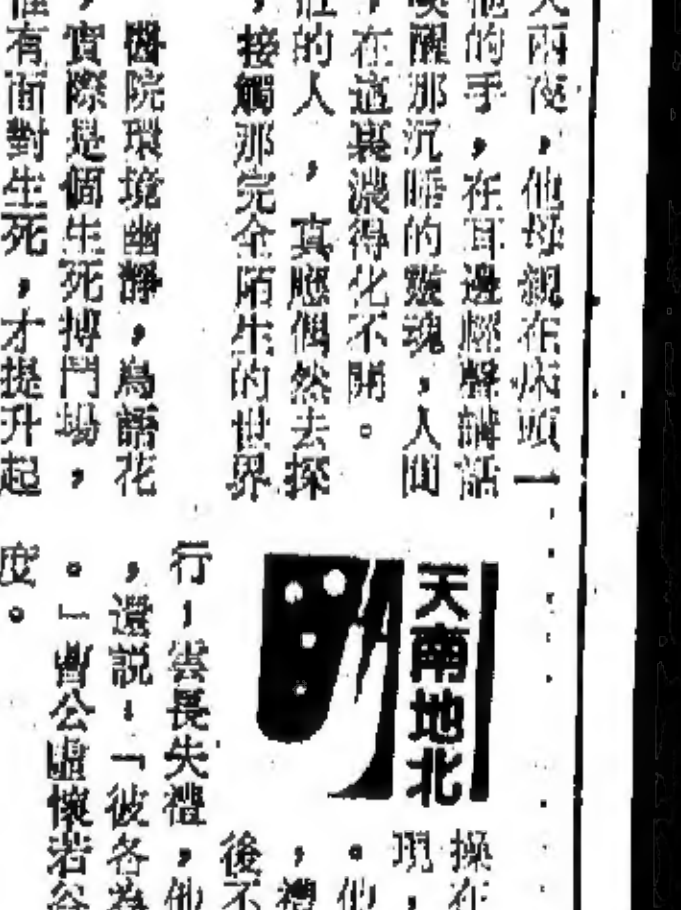 天兩夜，他母親在床頭一
他的手，在耳邊輕聲講話
喚醒那沉睡的靈魂，人間
，在這裏濃得化不開。
的人，真應偶然去探
，接觸那完全陌生的世界
醫院環境幽靜，鳥語花
，實際是個生死搏鬥場，
有面對生死，才提升起
天南地北
操在
現，
。他
，禮
後不
行！雲長失禮，他
，還説：「彼各為
。」曹公虛懷若谷
度。